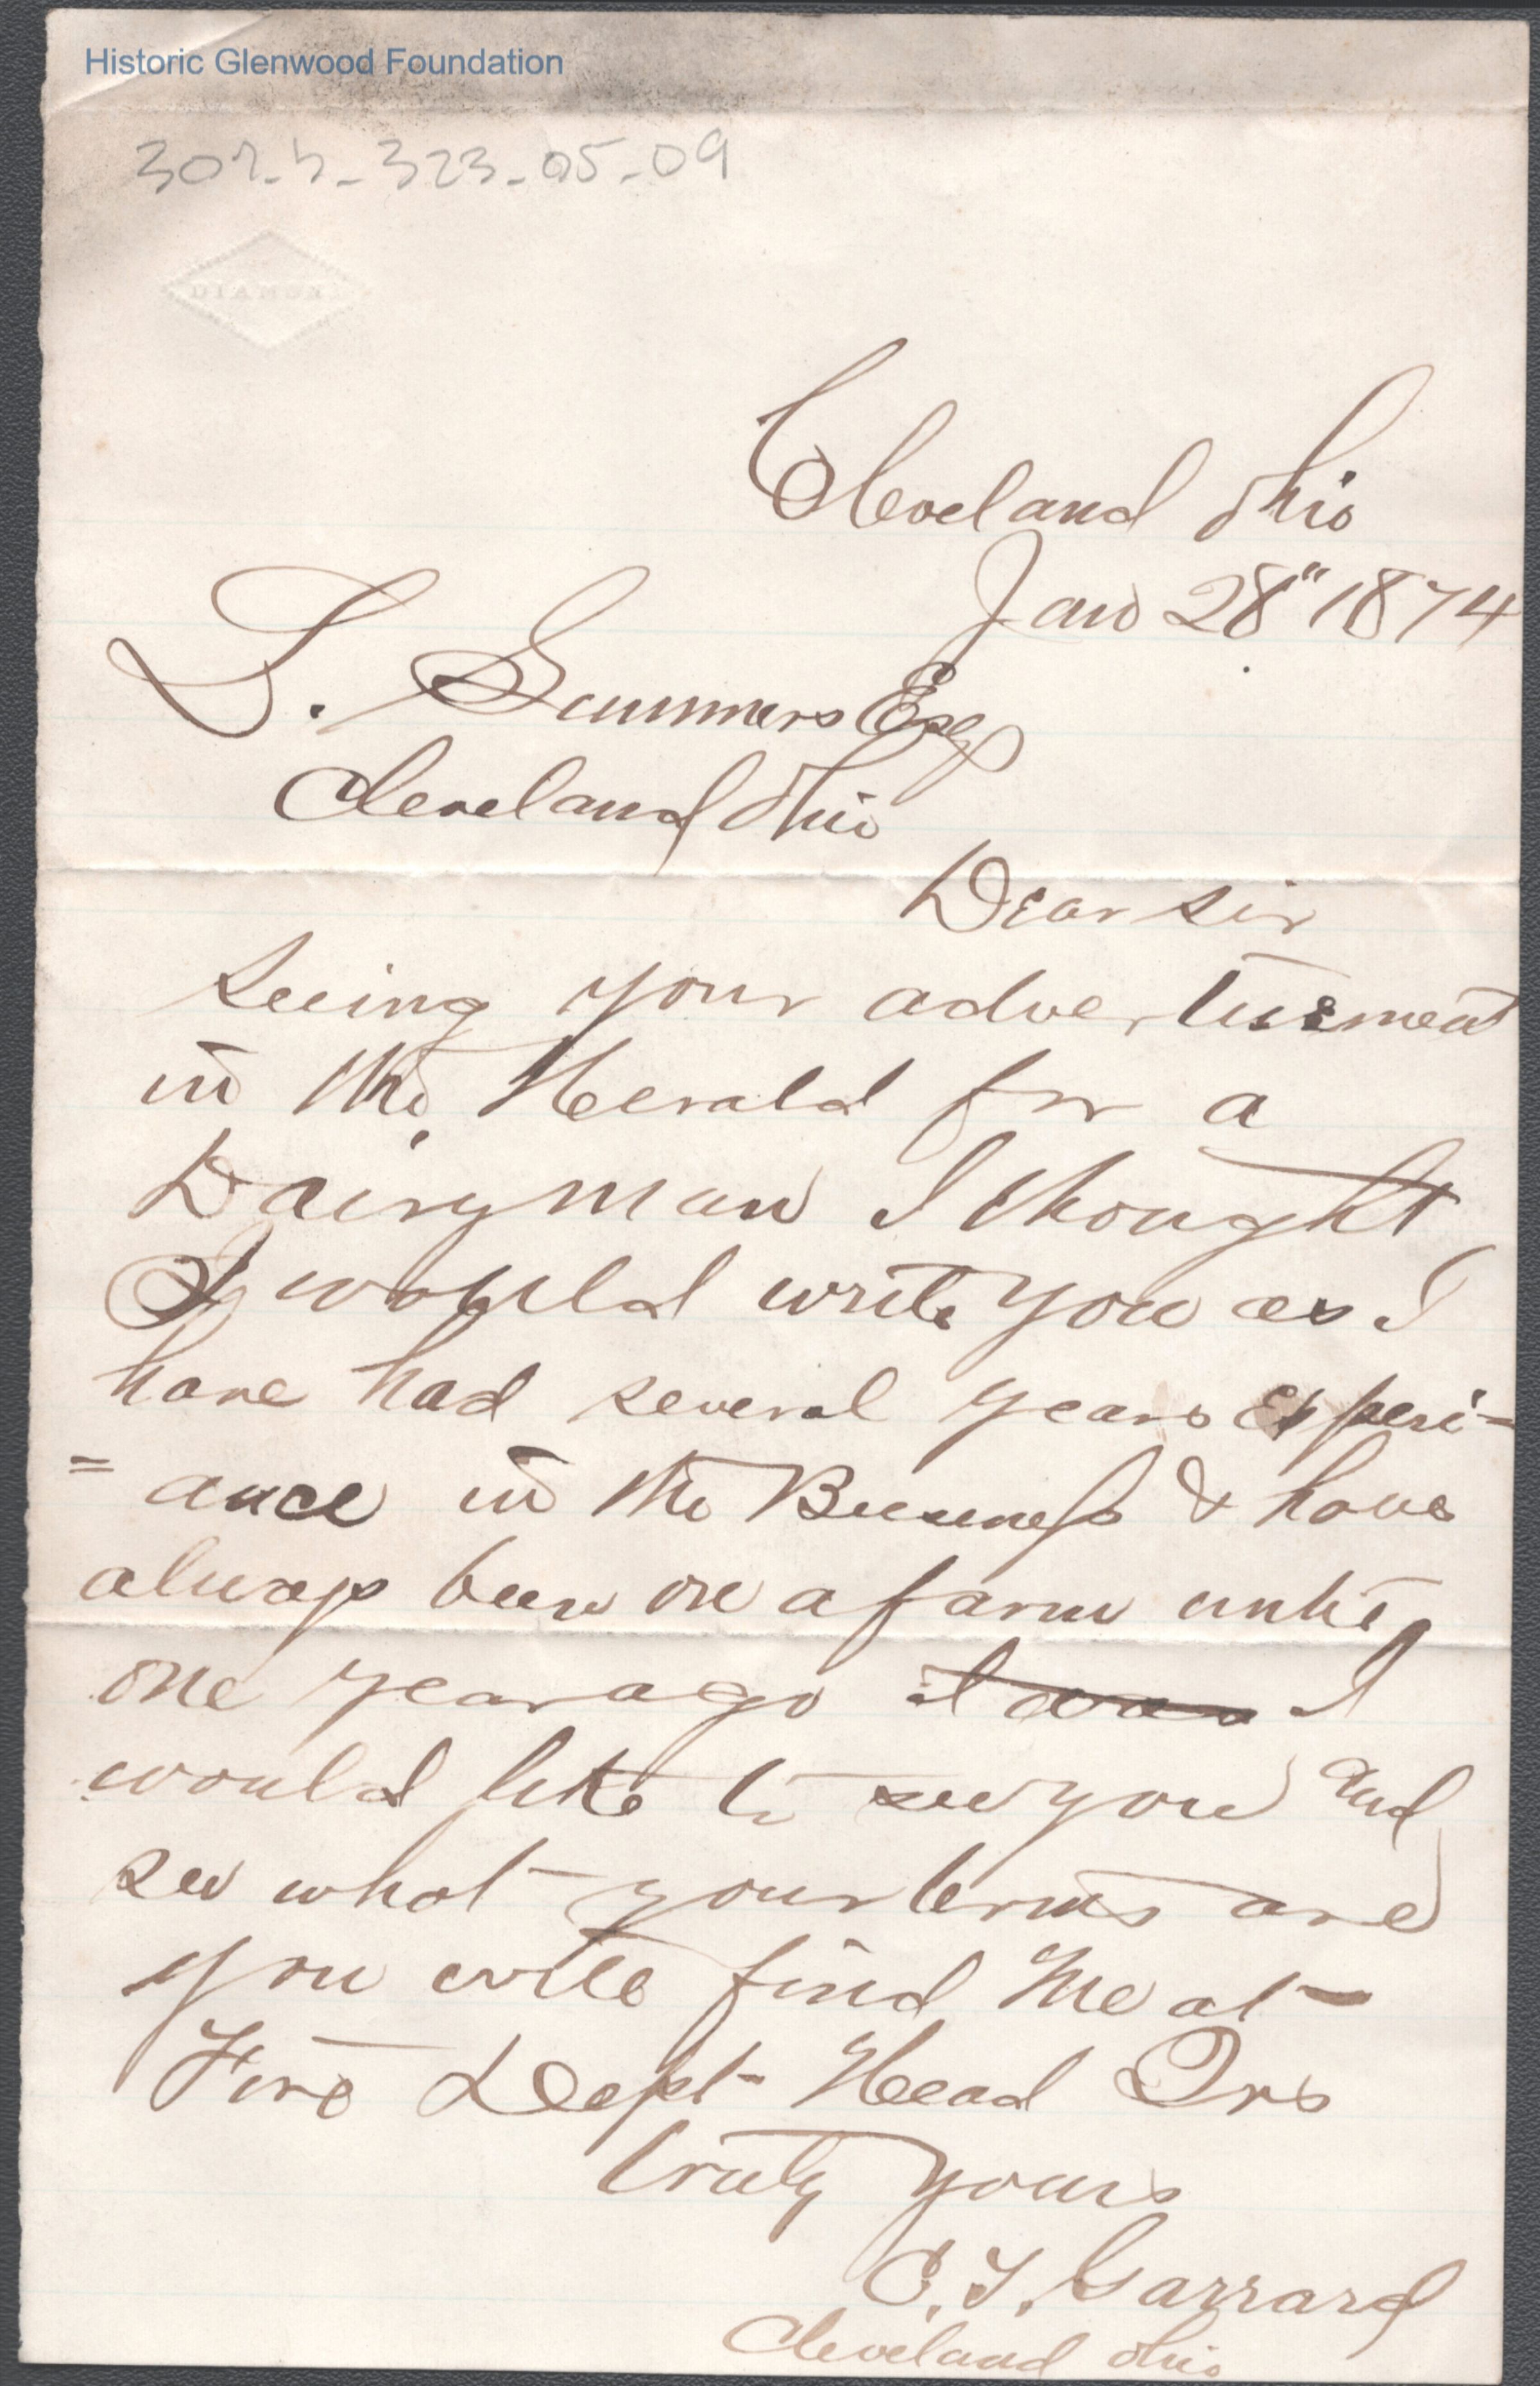 Historic Glenwood Foundation
307-5-323-05-09
DIAMOND
Cleveland Ohio
Jan 28" 1874
S. Summers Esq
Cleveland Ohio
Dear sir
Seeing your advertisment
in the Herald for a
Dairyman I thought
I would write you as I
have had several years experi-
=ance in the Business & have
always been on a farm until
one year ago I was I
would like to see you and
see what your terms are
you will find me at
Fire Dept Head Qrs
truly yours
C. T. Garrard
Cleveland Ohio